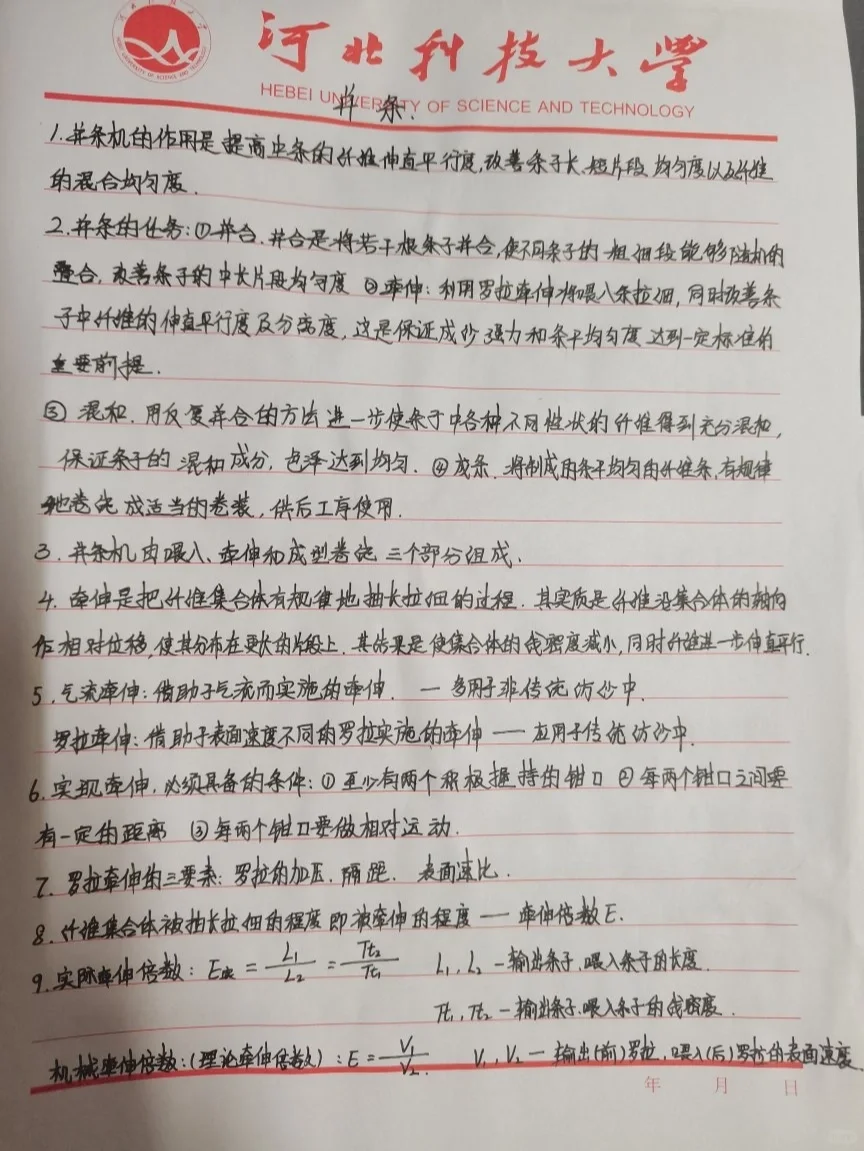 河北科技大学
HEBEI UNIVERSITY OF SCIENCE AND TECHNOLOGY
并条.
1.并条机的作用是提高生条的纤维伸直平行度,改善条子长、短片段均匀度以及纤维
的混合均匀度.
2.并条的任务:①并合.并合是将若干根条子并合,使不同条子的粗细段能够随机的
叠合,改善条子的中长片段均匀度 ②牵伸:利用罗拉牵伸将喂入条拉细,同时改善条
子中纤维的伸直平行度及分离度,这是保证成纱强力和条干均匀度达到一定标准的
重要前提.
③ 混和.用反复并合的方法进一步使条子中各种不同性状的纤维得到充分混和,
保证条子的混和成分,色泽达到均匀.④成条.将制成的条干均匀的纤维条,有规律
地卷绕成适当的卷装,供后工序使用.
3.并条机由喂入、牵伸和成型卷绕三个部分组成.
4.牵伸是把纤维集合体有规律地抽长拉细的过程.其实质是纤维沿集合体的轴向
作相对位移,使其分布在更长的片段上.其结果是使集合体的线密度减小,同时纤维进一步伸直平行.
5.气流牵伸:借助于气流而实施的牵伸. — 多用于非传统纺纱中.
罗拉牵伸:借助于表面速度不同的罗拉实施的牵伸 — 应用于传统纺纱中.
6.实现牵伸,必须具备的条件:① 至少有两个积极握持的钳口 ② 每两个钳口之间要
有一定的距离 ③ 每两个钳口要做相对运动.
7.罗拉牵伸的三要素:罗拉的加压.隔距.表面速比.
8.纤维集合体被抽长拉细的程度即被牵伸的程度 — 牵伸倍数E.
9.实际牵伸倍数:E实 = L₁/L₂ = Tt₂/Tt₁ L₁,L₂ — 输出条子.喂入条子的长度.
Tt₁,Tt₂ — 输出条子.喂入条子的线密度.
机械牵伸倍数:(理论牵伸倍数):E = V₁/V₂. V₁,V₂ — 输出(前)罗拉,喂入(后)罗拉的表面速度.
年 月 日